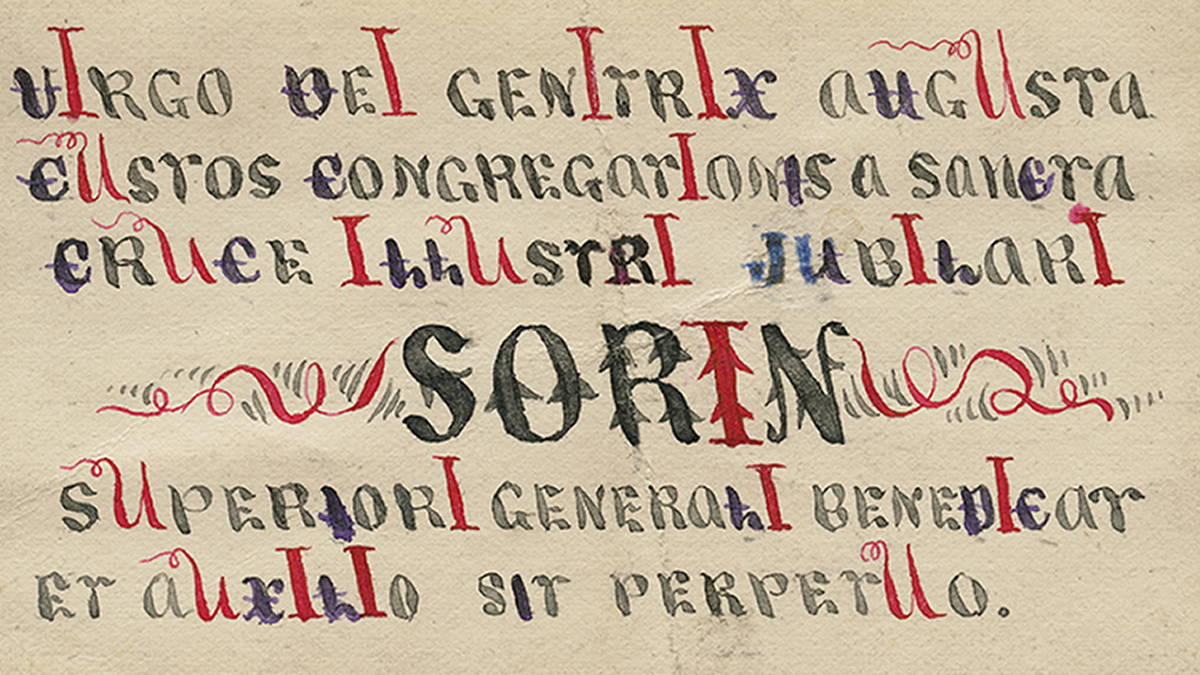 UIRGO DEI GENITRIX AUGUSTA
CUSTOS CONGREGATIONIS A SANCTA
CRUCE ILLUSTRI JUBILARI
SORIN
SUPERIORI GENERALI BENEDICAT
ET AUXILIO SIT PERPETUO.